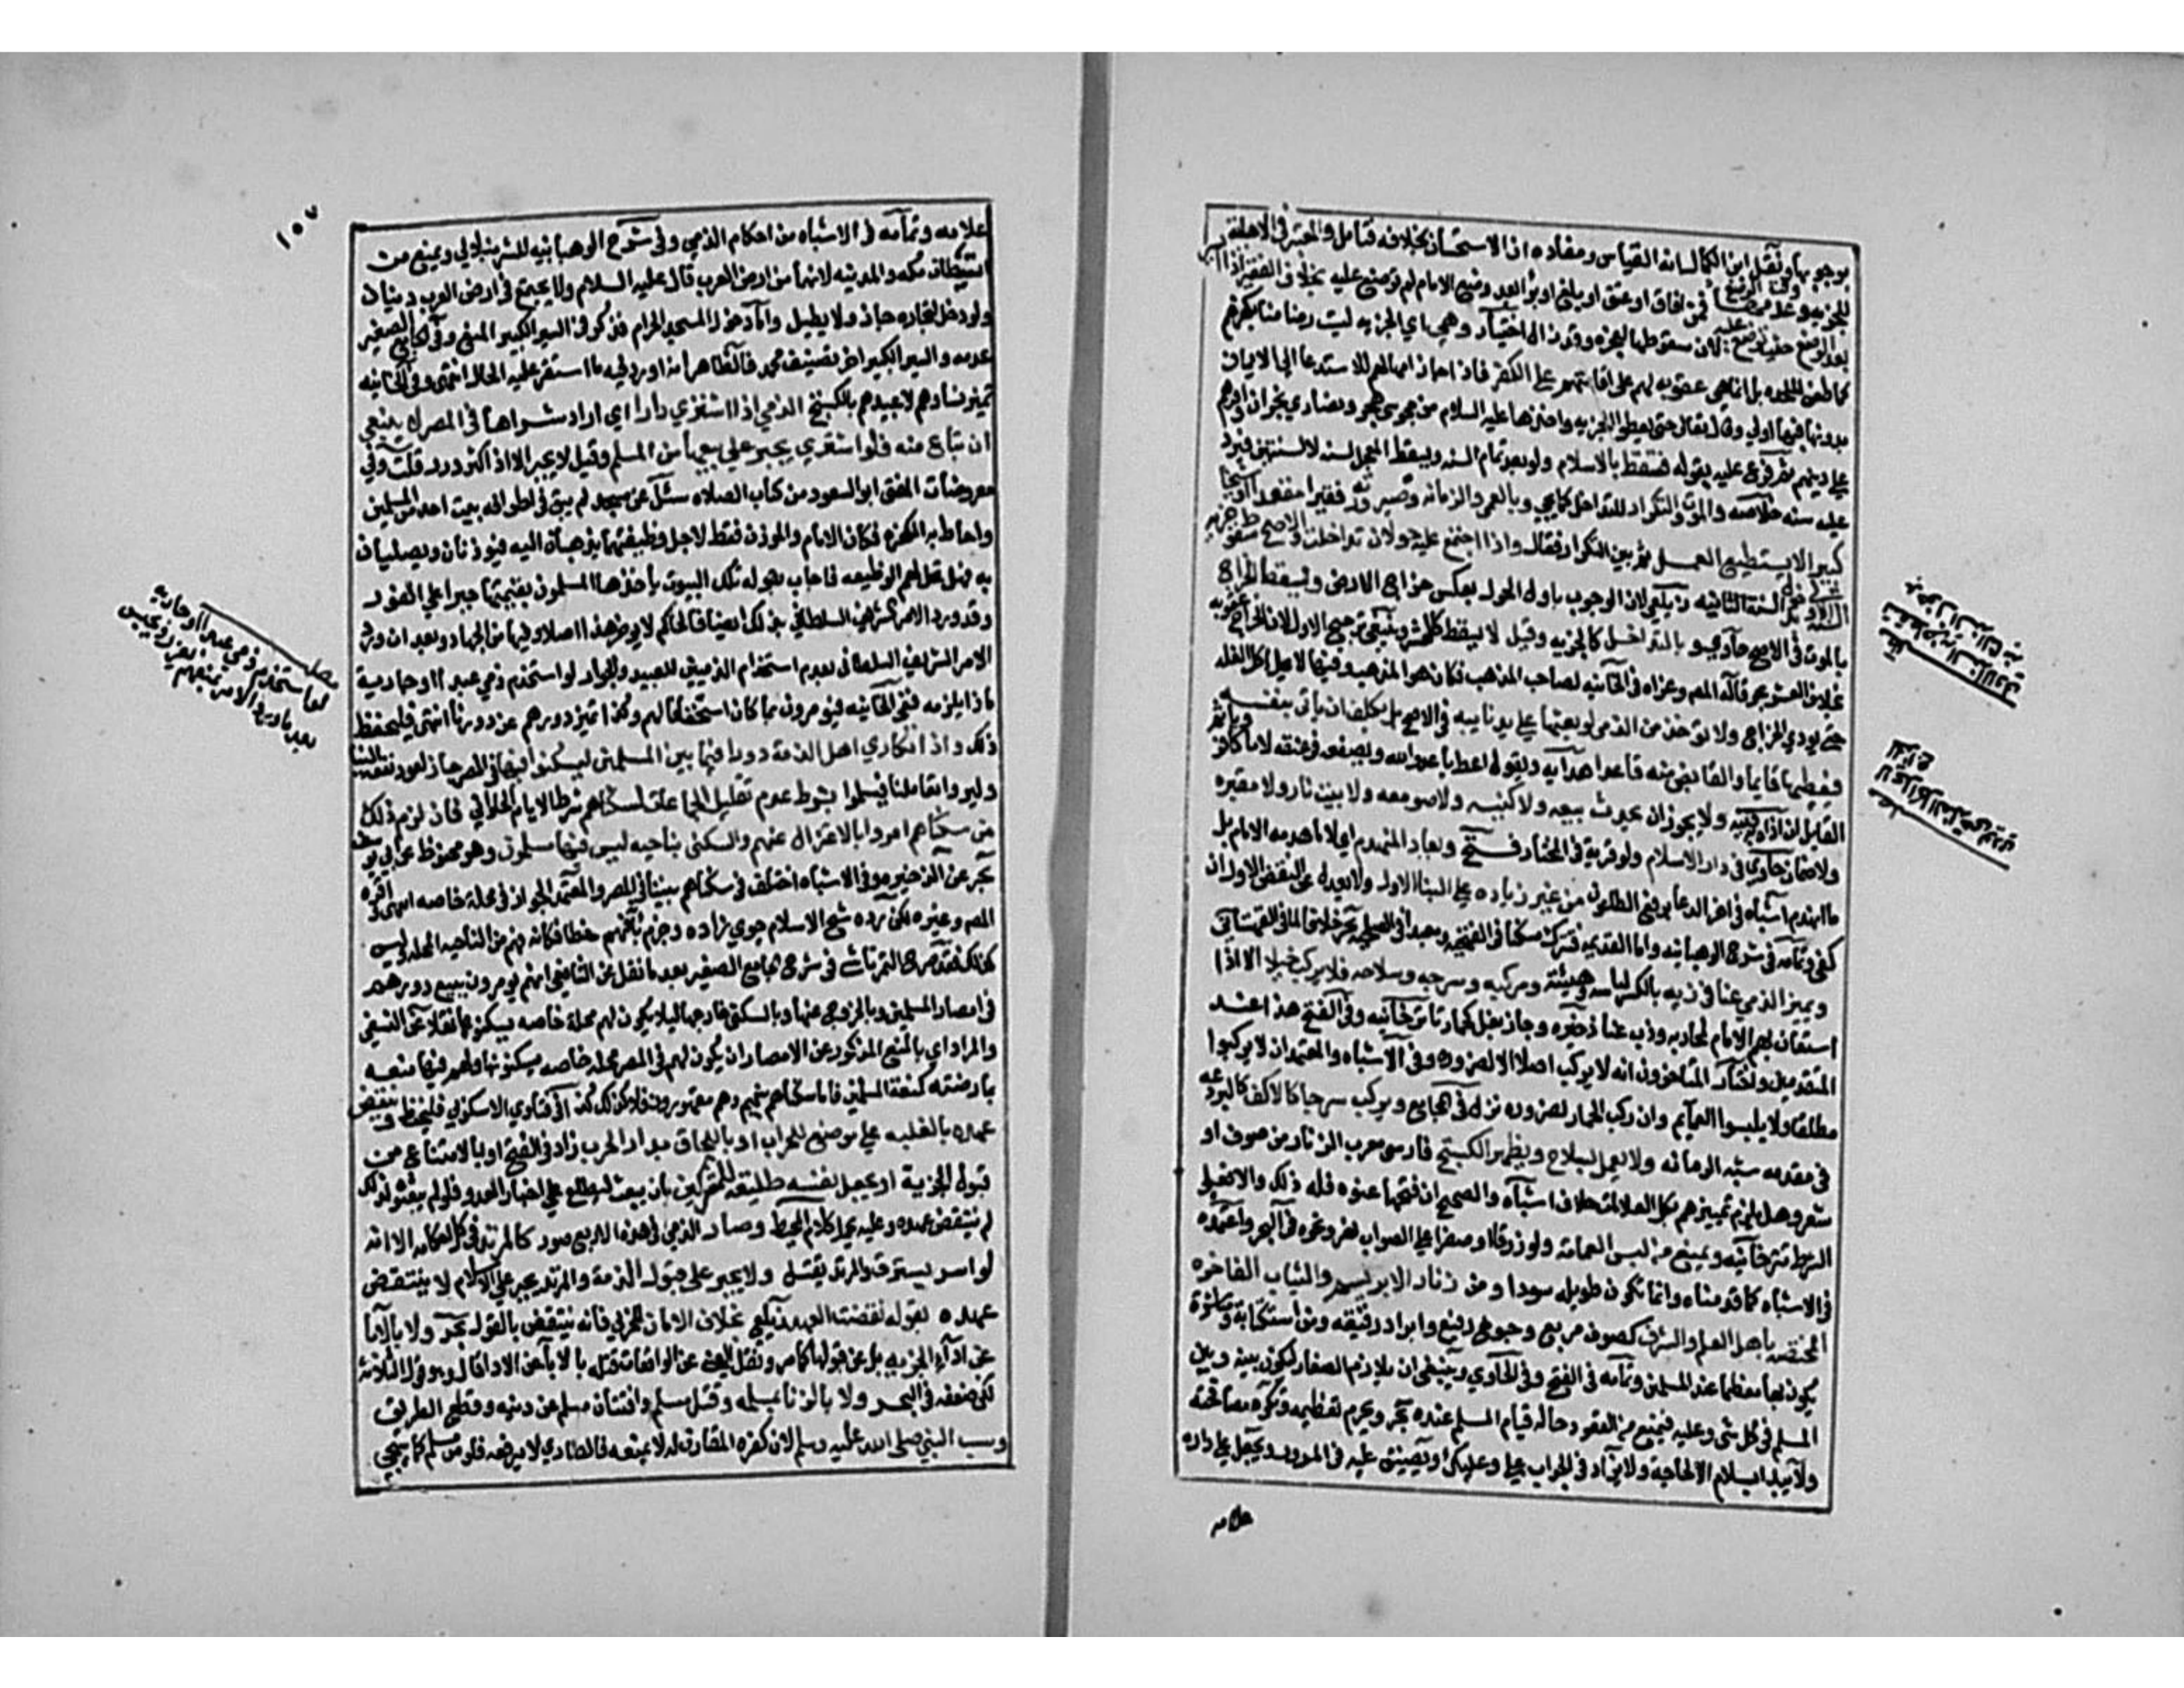 بوجوبها ونقل ابن الكمال انه القياس ومفاده ان الاستحسان بخلافه فتامل والمعتبر في الاهلية
للجزيه وعدمها وقت الوضع فمن افاق او عتق او بلغ او برأ بعد وضع الامام لم توضع عليه بخلاف الفقير اذا ايسر
بعد الوضع حيث توضع عليه لان سقوطها لعجزه وقد زال اختيار وهي اي الجزيه ليست رضا منا بكفرهم
كما طعن الملحده بل انما هي عقوبه لهم على اقامتهم على الكفر فاذا جاز امهالهم للاستدعا الى الايمان
بدونها فبها اولى وقال تعالى حتى يعطوا الجزيه واخذها عليه السلام من مجوس هجر ونصارى نجران واقرهم
على دينهم ثم فرع عليه بقوله فتسقط بالاسلام ولو بعد تمام السنه ويسقط المعجل لسنه لا لسنتين فيرد
عليه سنه خلاصه والموت والتكرار للتداخل كما يجي وبالعمى والزمانه وصيرورته فقيرا مقعدا او شيخا
كبيرا لا يستطيع العمل ثم بين التكرار فقال واذا اجتمع عليه حولان تداخلت والاصح سقوط جزيه
السنه الاولى بدخول السنة الثانيه زيلعي لان الوجوب باول الحول بعكس خراج الارض ويسقط الخراج
بالموت في الاصح حاوي وبالتداخل كالجزيه وقيل لا يسقط كالعشر وينبغي ترجيح الاول لان الخراج عقوبه
بخلاف العشر بحر قال المص وعزاه في الخانيه لصاحب المذهب فكان هو المذهب وفيها لا يحل اكل الغله
حتى يودي الخراج ولا تؤخذ من الذمي لو بعثها على يد نائبه في الاصح بل يكلف ان ياتي بنفسه
فيعطيها قايما والقابض منه قاعدا هدايه ويقول اعط يا عدو الله ويصفعه في عنقه لا يا كافر وياثم
القايل ان اذاه به قنيه ولا يجوز ان يحدث بيعه ولا كنيسه ولا صومعه ولا بيت نار ولا مقبره
ولا صنما حاوي في دار الاسلام ولو قرية في المختار فتح ويعاد المنهدم اي لا ما هدمه الامام بل
ما انهدم اشباه في اخر الدعا برفع الطاعون من غير زياده على البنا الاول ولا يعدل عن النقض الاول ان
كفى وتمامه في شرح الوهبانيه واما القديمه فتترك مسكنا في الفتحيه ومعبدا في الصلحيه بحر خلافا لما في القهستاني
ويميز الذمي عنا في زيه بالكسر لباسه وهيئته ومركبه وسرجه وسلاحه فلا يركب خيلا الا اذا
استعان بهم الامام لمحاربه وذب عنا ذخيره وجاز بغل كحمار تاترخانيه وفي الفتح هذا عند
المتقدمين واختار المتاخرون انه لا يركب اصلا الا لضروره وفي الاشباه والمعتمد ان لا يركبوا
مطلقا ولا يلبسوا العمايم وان ركب الحمار لضروره نزل في المجامع ويركب سرجا كالاكف كالبرذعه
في مقدمه شبه الرمانه ولا يعمل بسلاح ويظهر الكستيج فارسي معرب الزنار من صوف او
شعر وهل يلزم تمييزهم بكل العلامات خلاف اشباه والصحيح ان فتحها عنوه فله ذلك والا فعلى
الشرط تترخانيه ويمنع من لبس العمامة ولو زرقا او صفرا على الصواب نهر ونحوه في البحر واعتمده
في الاشباه كما قدمناه وانما تكون طويله سودا ومن زنار الابريسم والثياب الفاخره
المختصه باهل العلم والشرف كصوف مربع وجوخ رفيع وابراد رقيقه ومن استكتابة ومباشرة
يكون بها معظما عند المسلمين وتمامه في الفتح وفي الحاوي وينبغي ان يلازم الصغار فيما يكون بينه وبين
المسلم في كل شي وعليه فيمنع من القعود حال قيام المسلم عنده بحر ويحرم تعظيمه وتكره مصافحته
ولا يبدا بسلام الا لحاجة ولا يزاد في الجواب على وعليك ويضيق عليه في المرور ويجعل على داره
علامه
سقطت جزية السنة الاولى
بدخول السنة الثانية
مطلب
لا يحل اكل الغلة حتى يودي
الخراج
١٥٧
علامه وتمامه في الاشباه من احكام الذمي وفي شرح الوهبانيه للشرنبلالي ويمنع من
استيطان مكه والمدينه لانهما من ارض العرب قال عليه السلام ولا يجتمع في ارض العرب دينان
ولو دخل لتجاره جاز ولا يطيل واما دخوله المسجد الحرام فذكر في السير الكبير المنع وفي الجامع الصغير
عدمه والسير الكبير اخر تصنيف محمد فالظاهر انه اورد فيه ما استقر عليه الحال انتهى وفي الخانيه
تميز نساؤهم لا عبيدهم بالكستيج الذمي اذا اشترى دارا اي اراد شراها في المصر لا ينبغي
ان تباع منه فلو اشترى يجبر على بيعها من المسلم وقيل لا يجبر الا اذا كثر درر قلت وفي
معروضات المفتي ابو السعود من كتاب الصلاه سئل عن مسجد لم يبق في اطرافه بيت احد من المسلمين
واحاط به الكفره فكان الامام والموذن فقط لاجل وظيفتهما يذهبان اليه فيوذنان ويصليان
به فهل تحل لهم الوظيفه فاجاب بقوله تلك البيوت ياخذها المسلمون بقيمتها جبرا على الفور
وقد ورد الامر الشريف السلطاني بذلك ايضا فالحاكم لا يوخر هذا اصلا وفيها من الجهاد وبعد ان ورد
الامر الشريف السلطاني بعدم استخدام الذميين للعبيد والجوار لو استخدم ذمي عبدا او جارية
ماذا يلزمه ففي الخانيه فيومرون بما كان استخفافا لهم وكذا تميز دورهم عن دورنا انتهى فليحفظ
ذلك واذا تكارى اهل الذمة دورا فيما بين المسلمين ليسكنوا فيها في المصر جاز لعود نفعه الينا
وليروا تعاملنا فيسلموا بشرط عدم تقليل الجماعات لسكناهم شرطه الامام الحلواني فان لزم ذلك
من سكناهم امروا بالاعتزال عنهم والسكنى بناحيه ليس فيها مسلمون وهو محفوظ عن ابي يوسف
بحر عن الذخيره وفي الاشباه اختلف في سكناهم بيننا في المصر والمعتمد الجواز في محلة خاصه انتهى واقره
المص وغيره لكن رده شيخ الاسلام جوي زاده وجزم بانه فهم خطا فكانه فهم من الناحيه المحله وليس
كذلك فقد صرح التمرتاشي في شرح الجامع الصغير بعد ما نقل عن الشافعي انهم يومرون ببيع دورهم
في امصار المسلمين وبالخروج عنها وبالسكنى خارجها ليلا يكون لهم محلة خاصه فيسكنونها نقلا عن النسفي
والمراد اي بالمنع المذكور عن الامصار ان يكون لهم في المصر محله خاصه يسكنونها ولهم فيها منعه
عارضته كمنعة المسلمين فاما سكناهم بينهم وهم مقهورون فلا كذلك كذا في فتاوي الاسكوبي فليحفظ وينتقض
عهده بالغلبه على موضع للحراب او باللحاق بدار الحرب زاد في الفتح او بالامتناع من
قبول الجزية او يجعل نفسه طليعه للمشركين بان يبعث ليطلع على اخبار العدو فلو لم يبعثوه لذلك
لم ينتقض عهده وعليه يحمل كلام المحيط وصار الذمي في هذه الاربع صور كالمرتد في كل احكامه الا انه
لو اسر يسترق والمرتد يقتل ولا يجبر على قبول الذمة والمرتد يجبر على الاسلام لا ينتقض
عهده بقوله نقضت العهد زيلعي بخلاف الامان للحربي فانه ينتقض بالقول بحر ولا بالابا
عن اداء الجزيه بل عن قبولها كما مر ونقل العيني عن الواقعات قتله بالابا عن الادا قال وهو قول الثلاثة
لكن ضعفه في البحر ولا بالزنا بمسلمه وقتل مسلم وافتتان مسلم عن دينه وقطع الطريق
وسب النبي صلى الله عليه وسلم لان كفره المقارن له لا يمنعه فالطاري لا يرفعه فلو من مسلم كما يجي
مطلب
لو استخدم ذمي عبدا او جاريه
بعد ما ورد الامر بمنعهم يعزر ويحبس